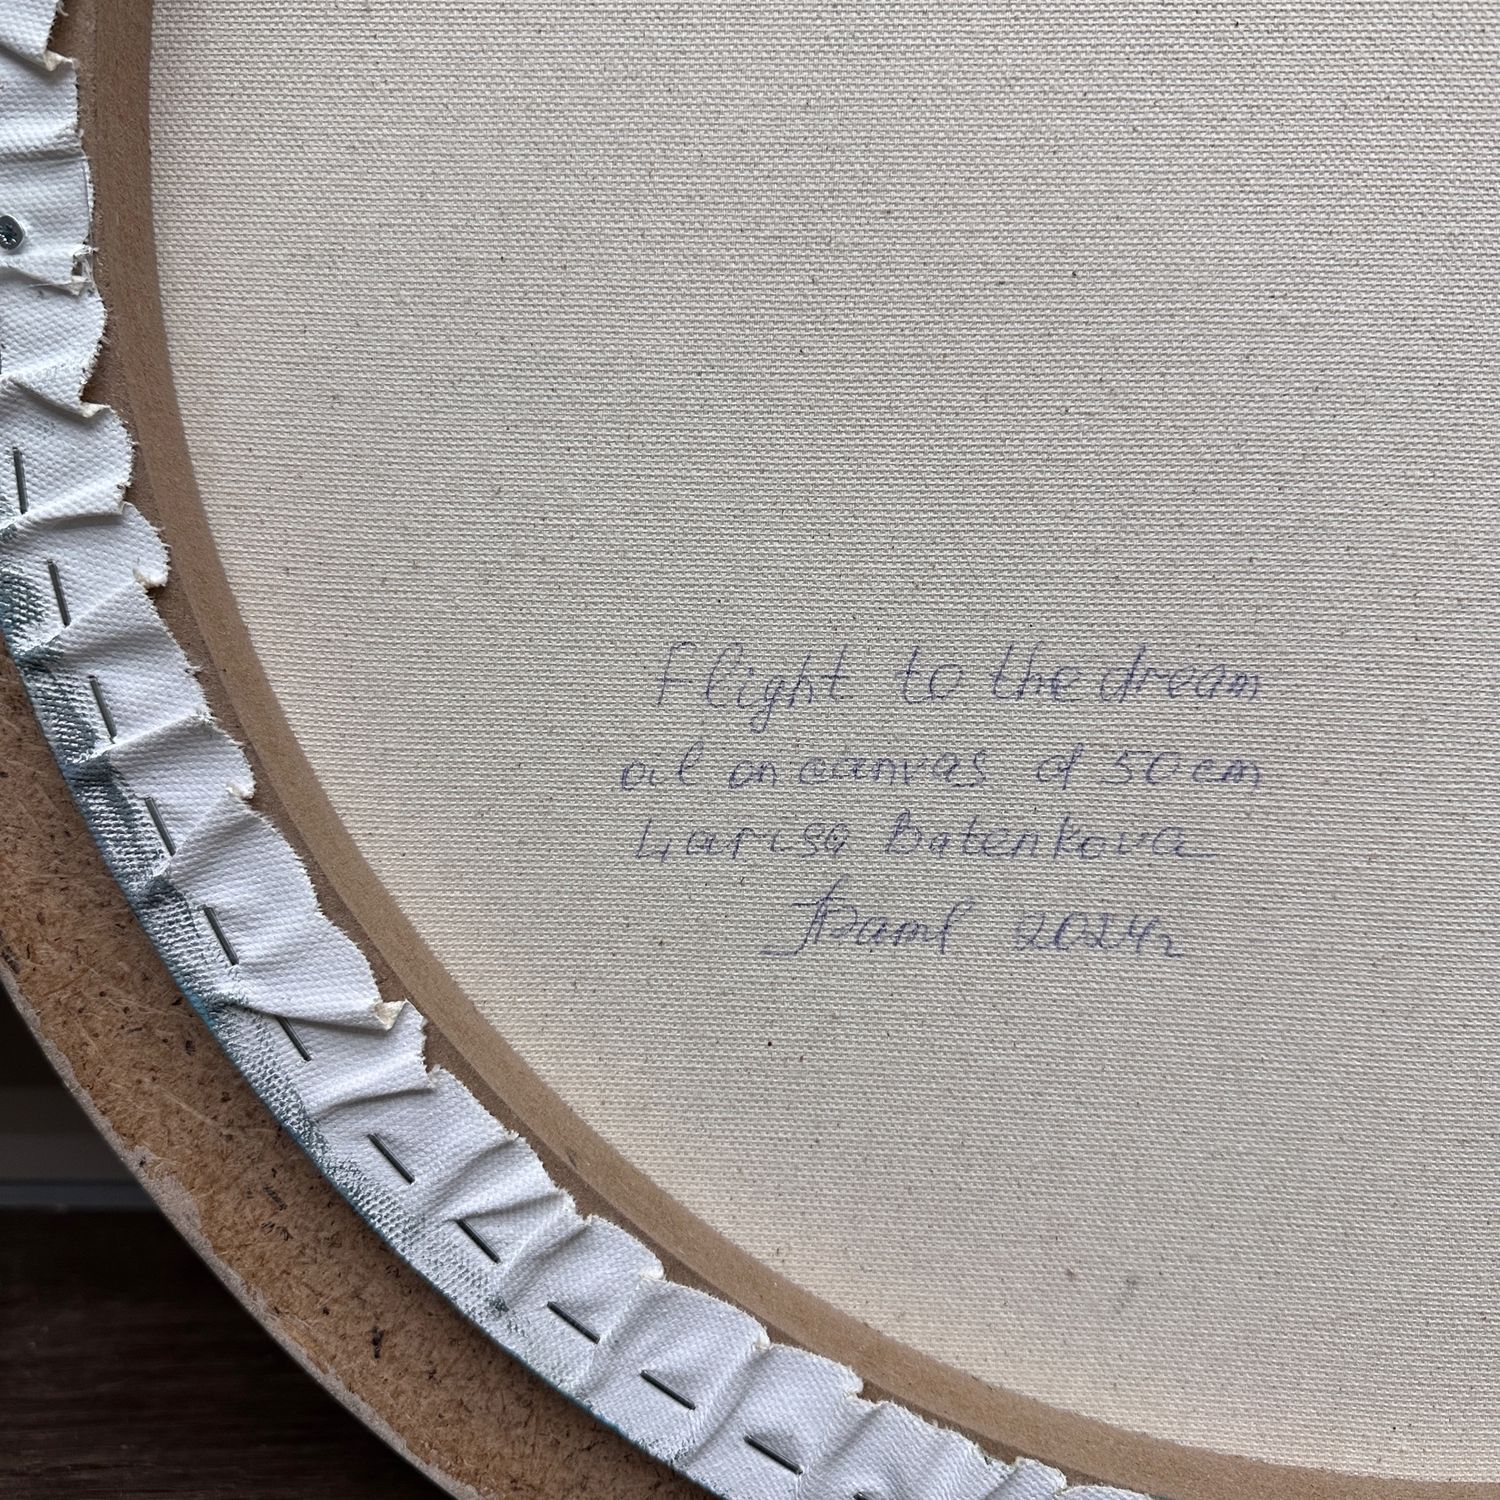 Flight to the dream
oil on canvas d 50 cm
Larisa Batenkova
2024г